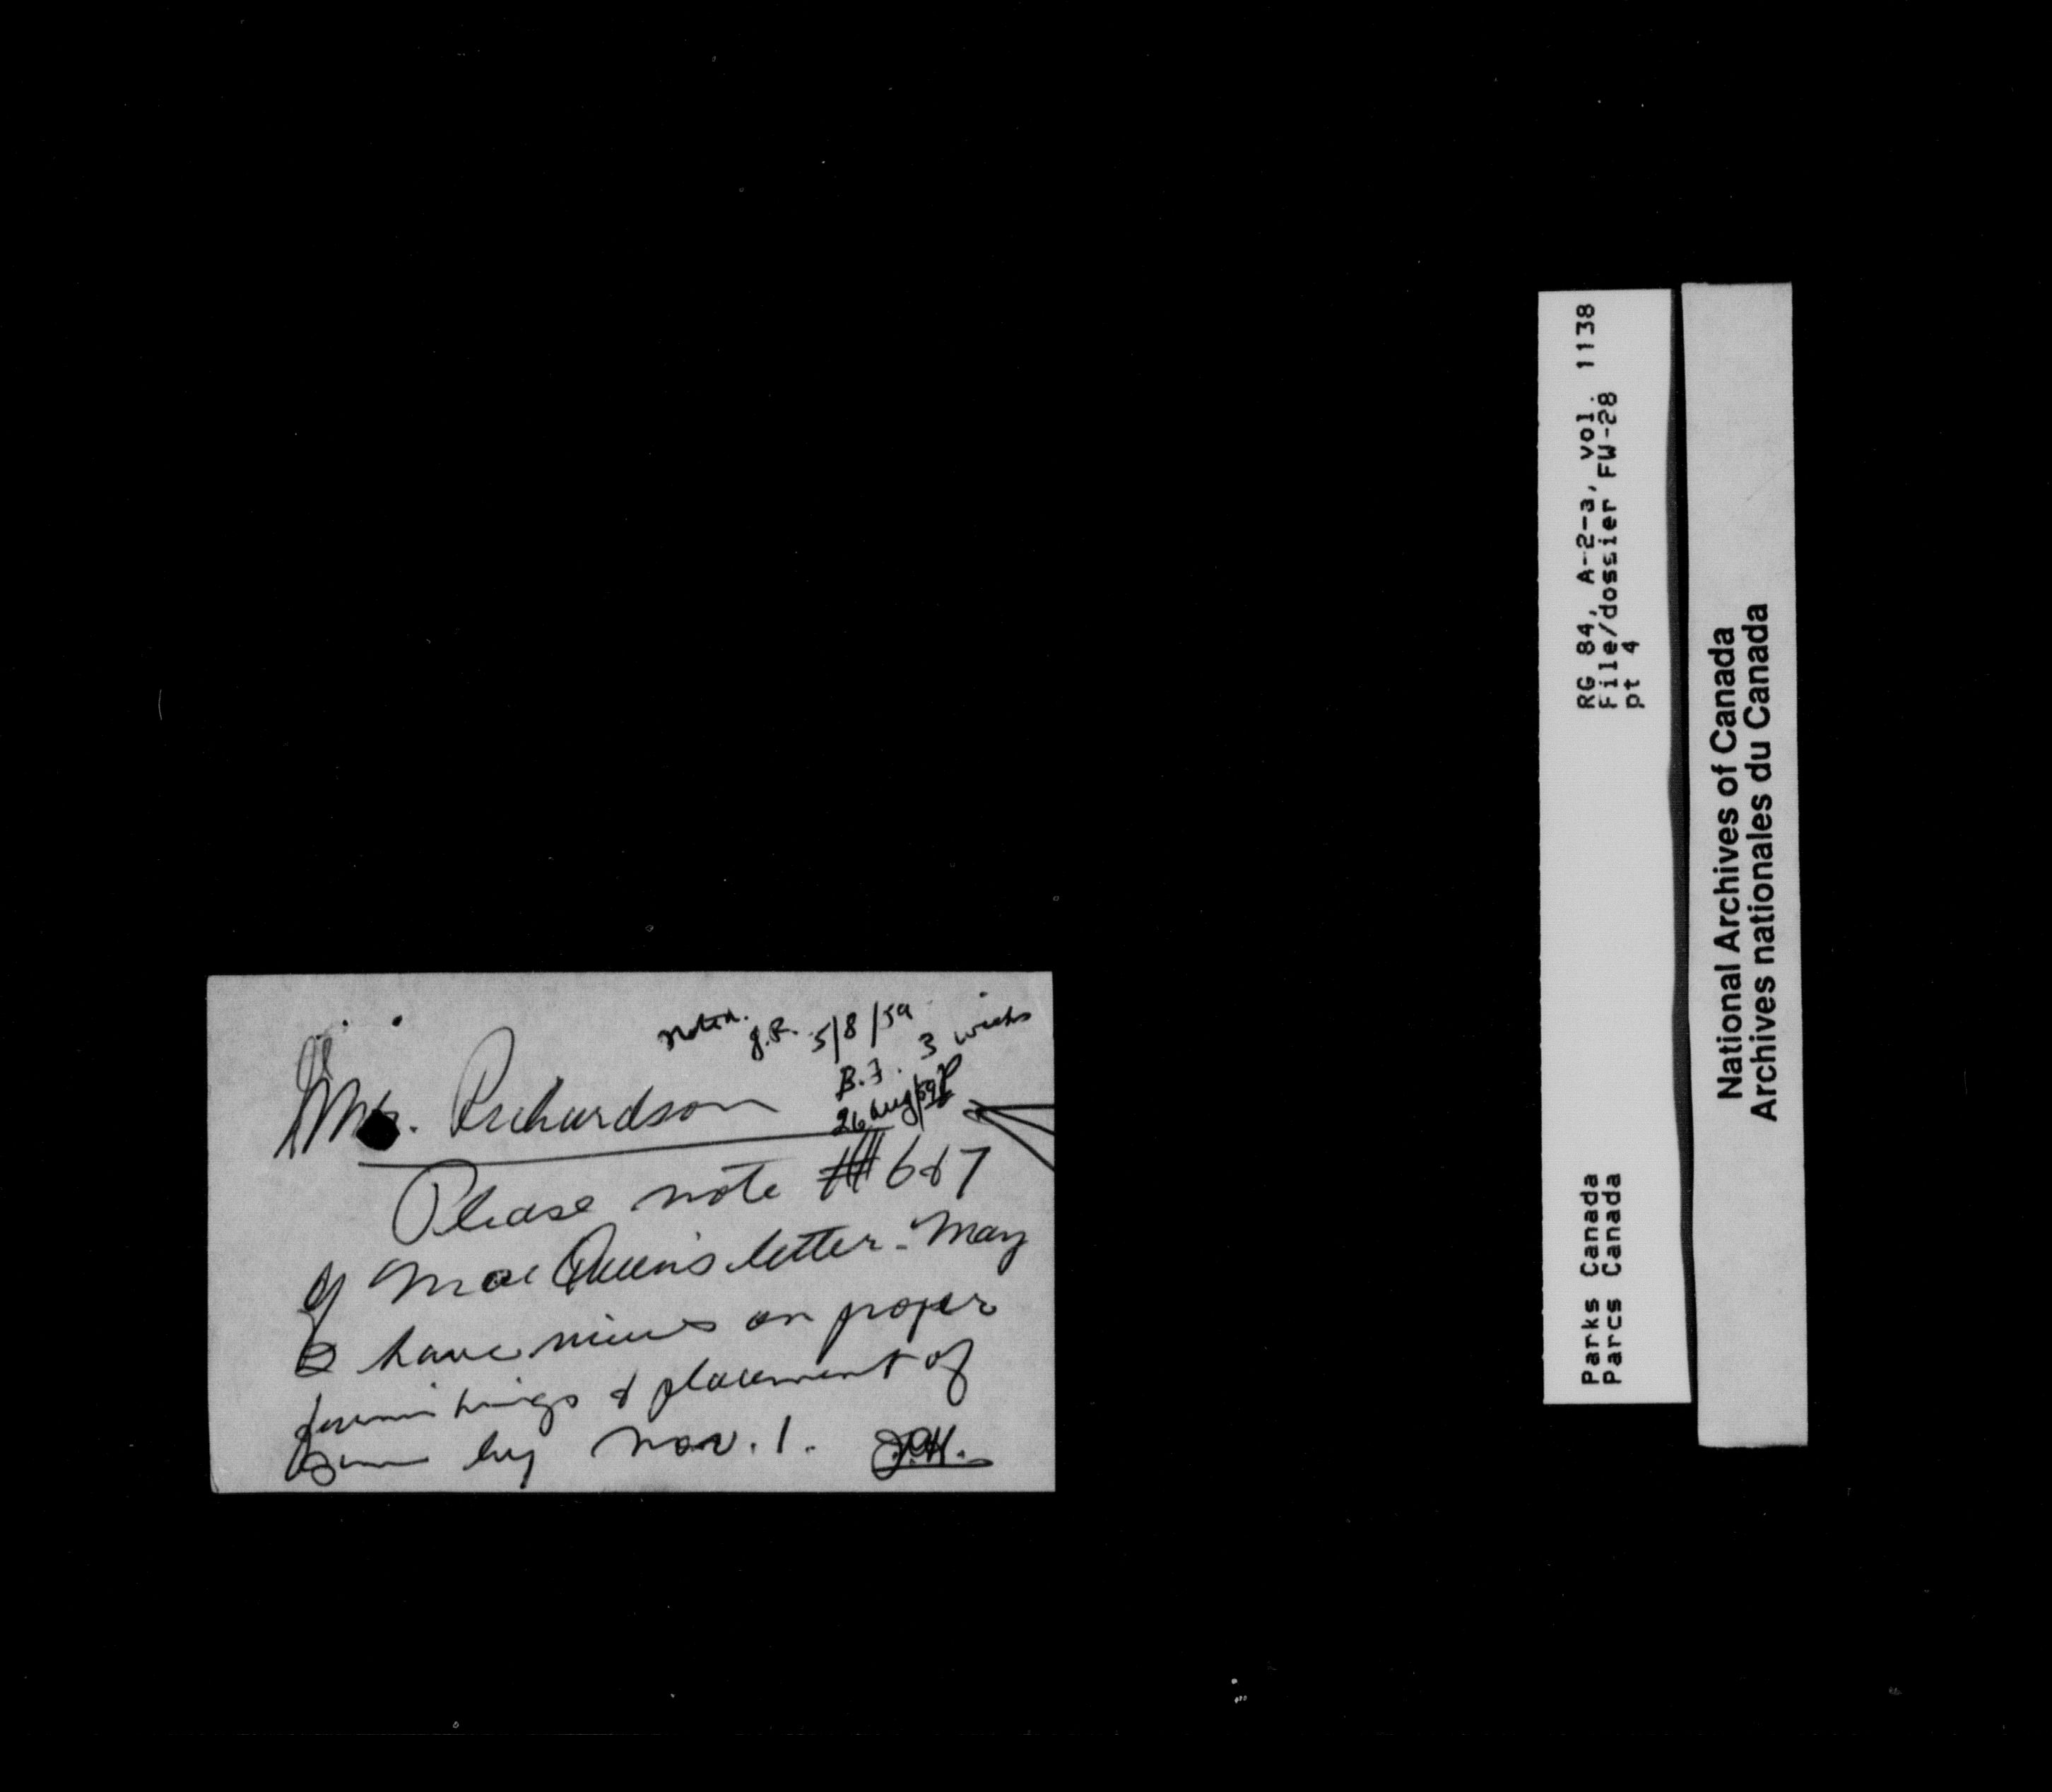 Noted.
J.R. 5/8/59
B.F. 3 weeks
26 Aug/59
Mr. Richardson
Please note ## 6 & 7
of MacQueen's letter - May
I have views on proper
furnishings & placement of
same by Nov. 1. J.R.H.
RG 84, A-2-a, vol. 1138
File/dossier FW-28
pt 4
Parks Canada
Parcs Canada
National Archives of Canada
Archives nationales du Canada